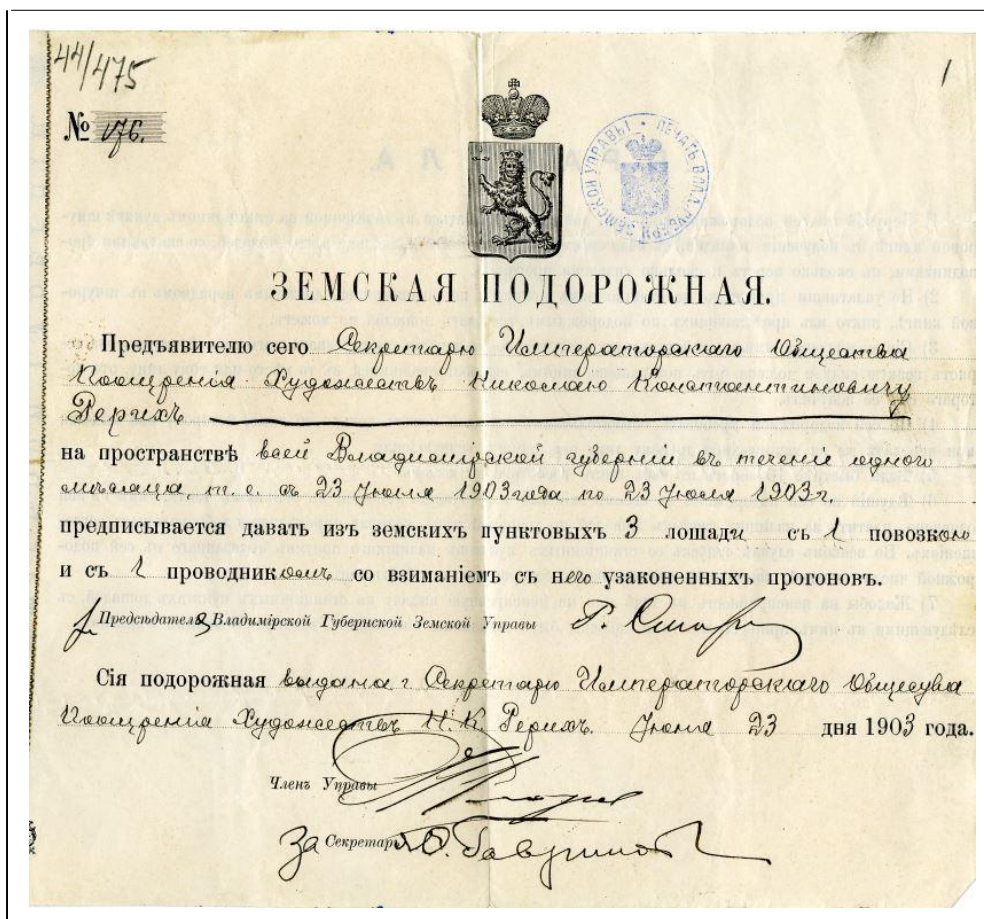 44/475
1
№ 176.
ПЕЧАТЬ ВЛАД. ГУБЕРН. ЗЕМСКОЙ УПРАВЫ
ЗЕМСКАЯ ПОДОРОЖНАЯ.
Предъявителю сего Секретарю Императорскаго Общества
Поощренія Художествъ Николаю Константиновичу
Рерихъ
на пространствѣ всей Владимірской губерніи въ теченіе одного
мѣсяца, т. е. съ 23 Іюня 1903 года по 23 Іюля 1903 г.
предписывается давать изъ земскихъ пунктовыхъ 3 лошади съ 1 повозкою
и съ 1 проводникомъ со взиманіемъ съ него узаконенныхъ прогоновъ.
Предсѣдателя Владимірской Губернской Земской Управы
Сія подорожная выдана г. Секретарю Императорскаго Общества
Поощренія Художествъ Н. К. Рерихъ. Іюня 23 дня 1903 года.
Членъ Управы
За Секретаря